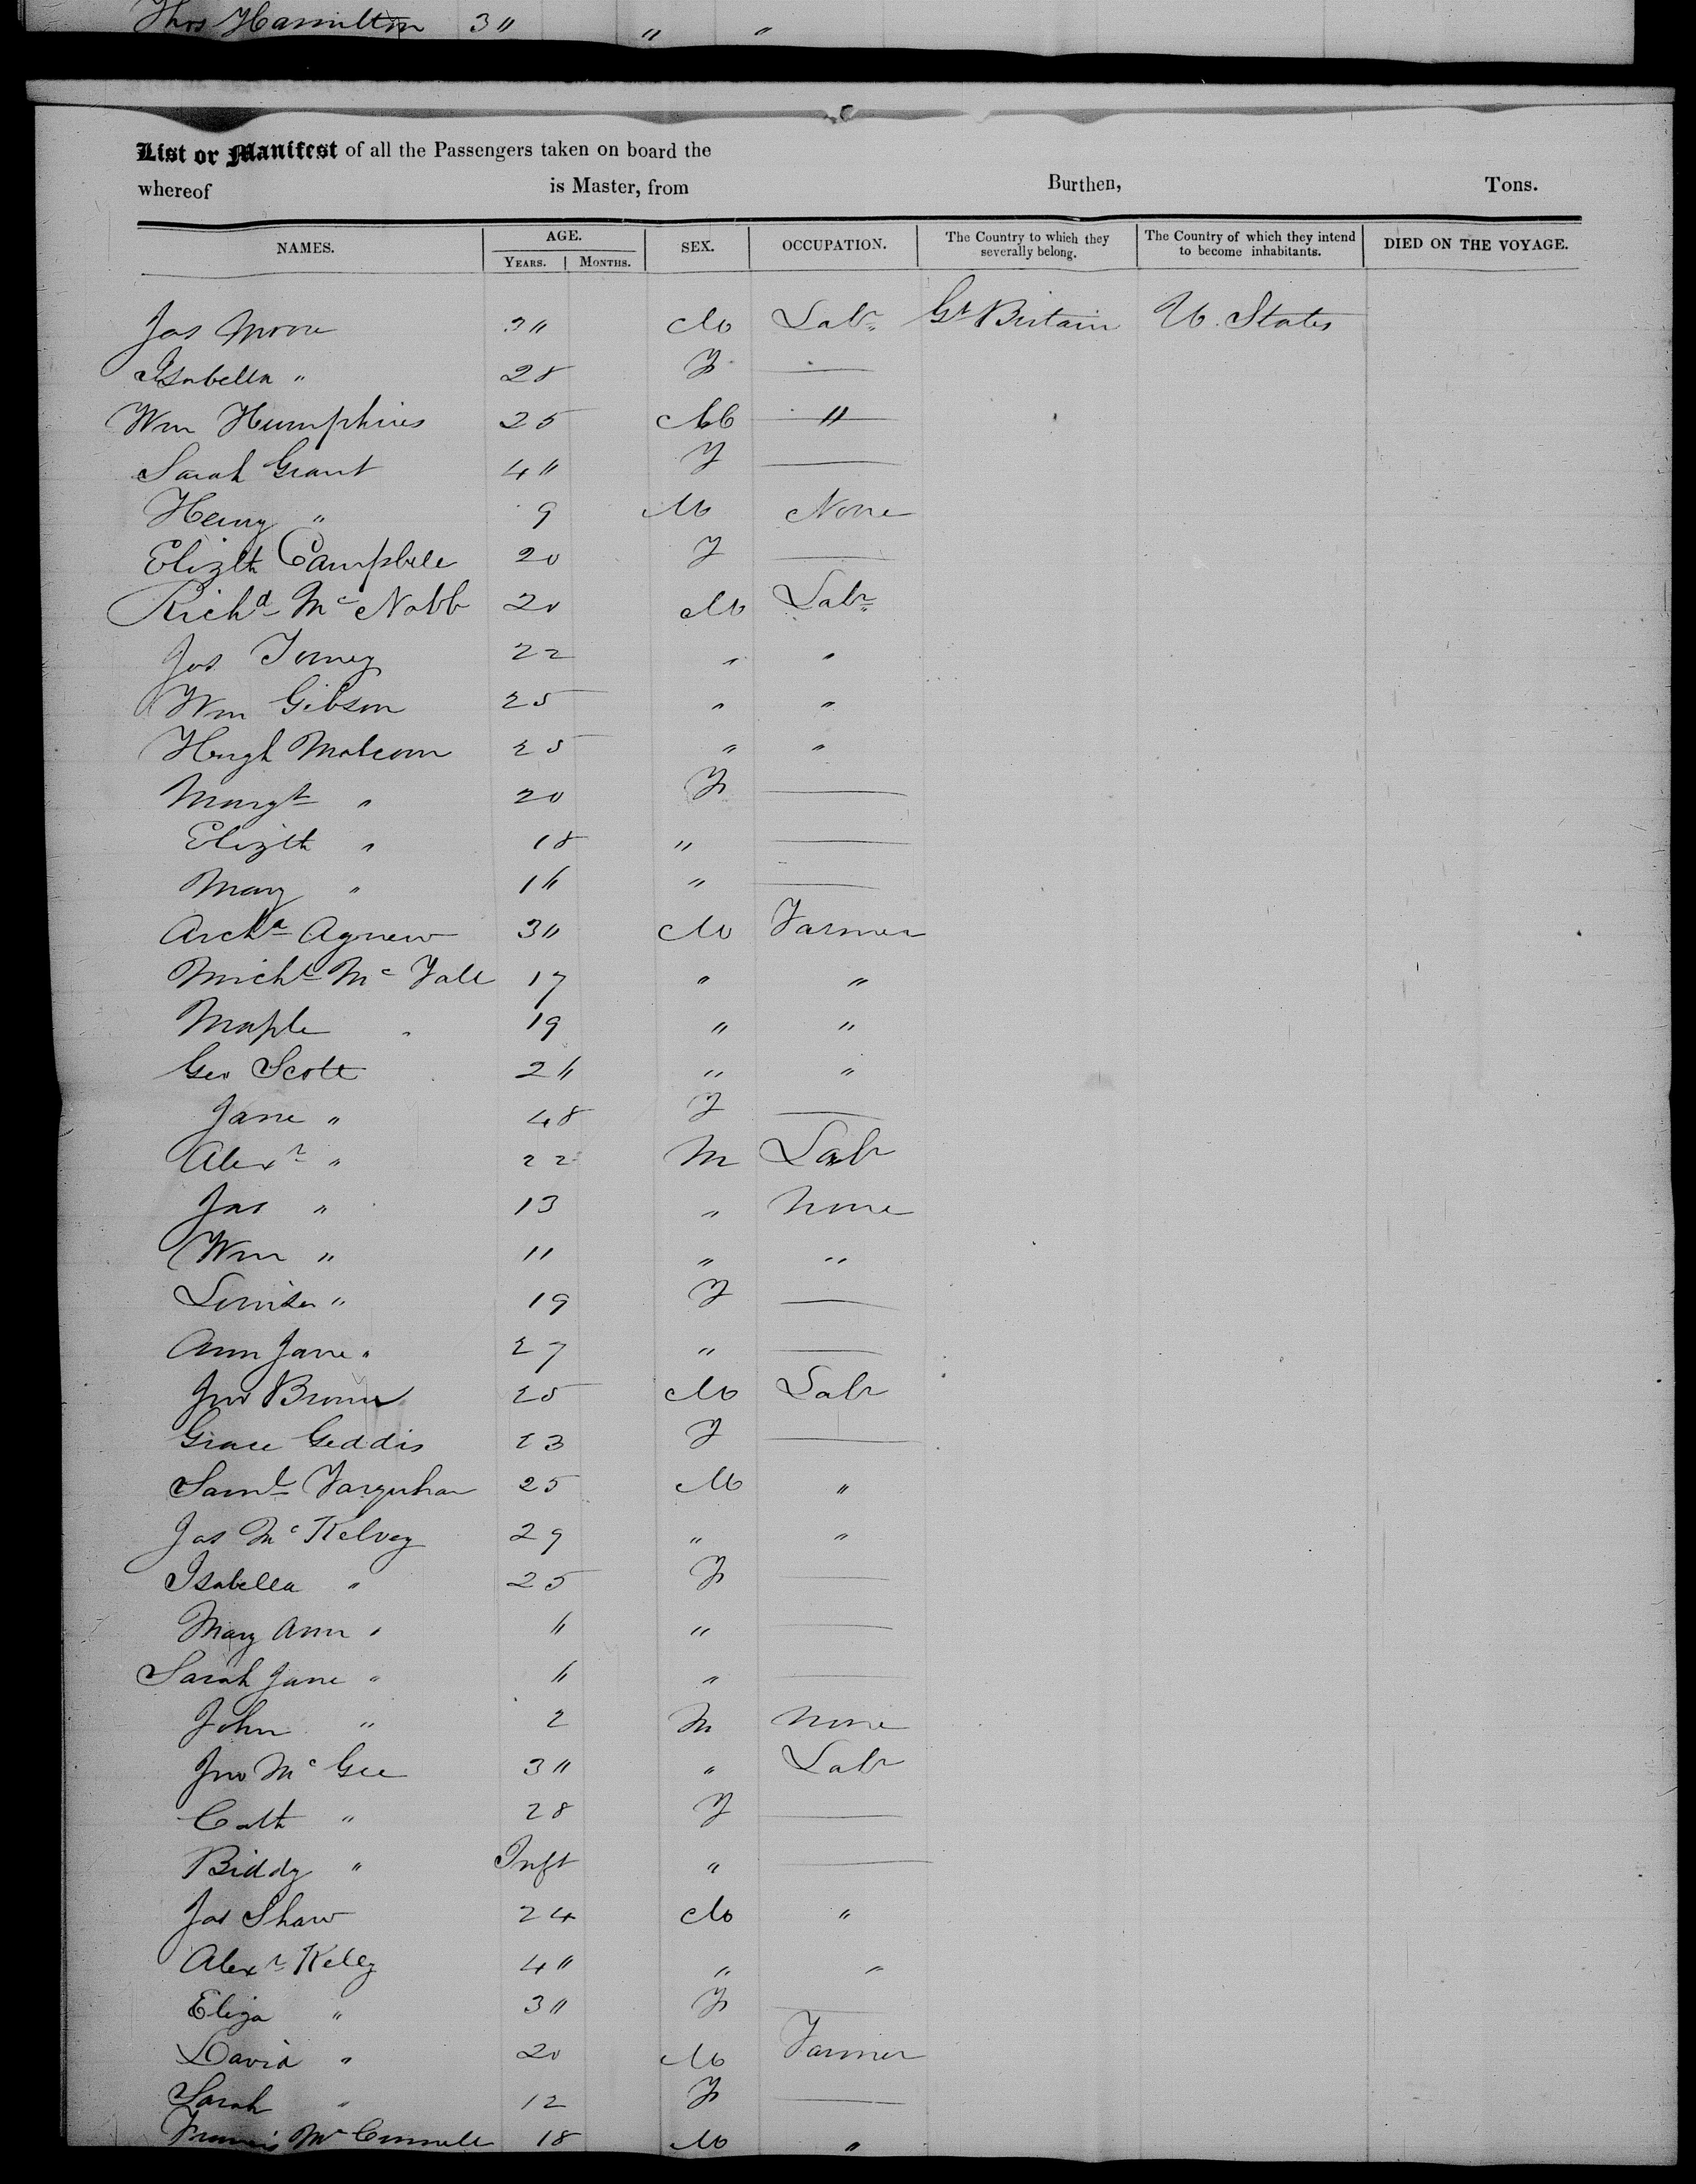 Thos Hamilton 3" " "
List or Manifest of all the Passengers taken on board the
whereof is Master, from Burthen, Tons.
NAMES. AGE. SEX. OCCUPATION. The Country to which they severally belong. The Country of which they intend to become inhabitants. DIED ON THE VOYAGE.
YEARS. MONTHS.
Jas Moore 3" M Labr Gt Britain U. States
Isabella " 28 F —
Wm Humphries 25 M "
Sarah Grant 4" F —
Henry " 9 M None
Elizth Campbell 20 F —
Richd Mc Nabb 20 M Labr
Jas Torney 22 " "
Wm Gibson 25 " "
Hugh Malcom 25 " "
Margt " 20 F —
Elizth " 18 " —
Mary " 16 " —
Archd Agnew 3" M Farmer
Michl Mc Fall 17 " "
Maple " 19 " "
Geo Scott 26 " "
Jane " 48 F —
Alexr " 22 M Labr
Jas " 13 " None
Wm " 11 " "
Louisa " 19 F —
Ann Jane " 27 " —
Jno Brown 25 M Labr
Grace Geddis 23 F —
Saml Farquhar 25 M "
Jas Mc Kelvey 29 " "
Isabella " 25 F —
Mary Ann " 6 " —
Sarah Jane " 4 " —
John " 2 M None
Jno Mc Gee 3" " Labr
Cath " 28 F —
Biddy " Inft " —
Jas Shaw 24 M "
Alexr Kelly 4" " "
Eliza " 3" F —
David " 20 M Farmer
Sarah " 12 F —
Francis Mc Connell 18 M "